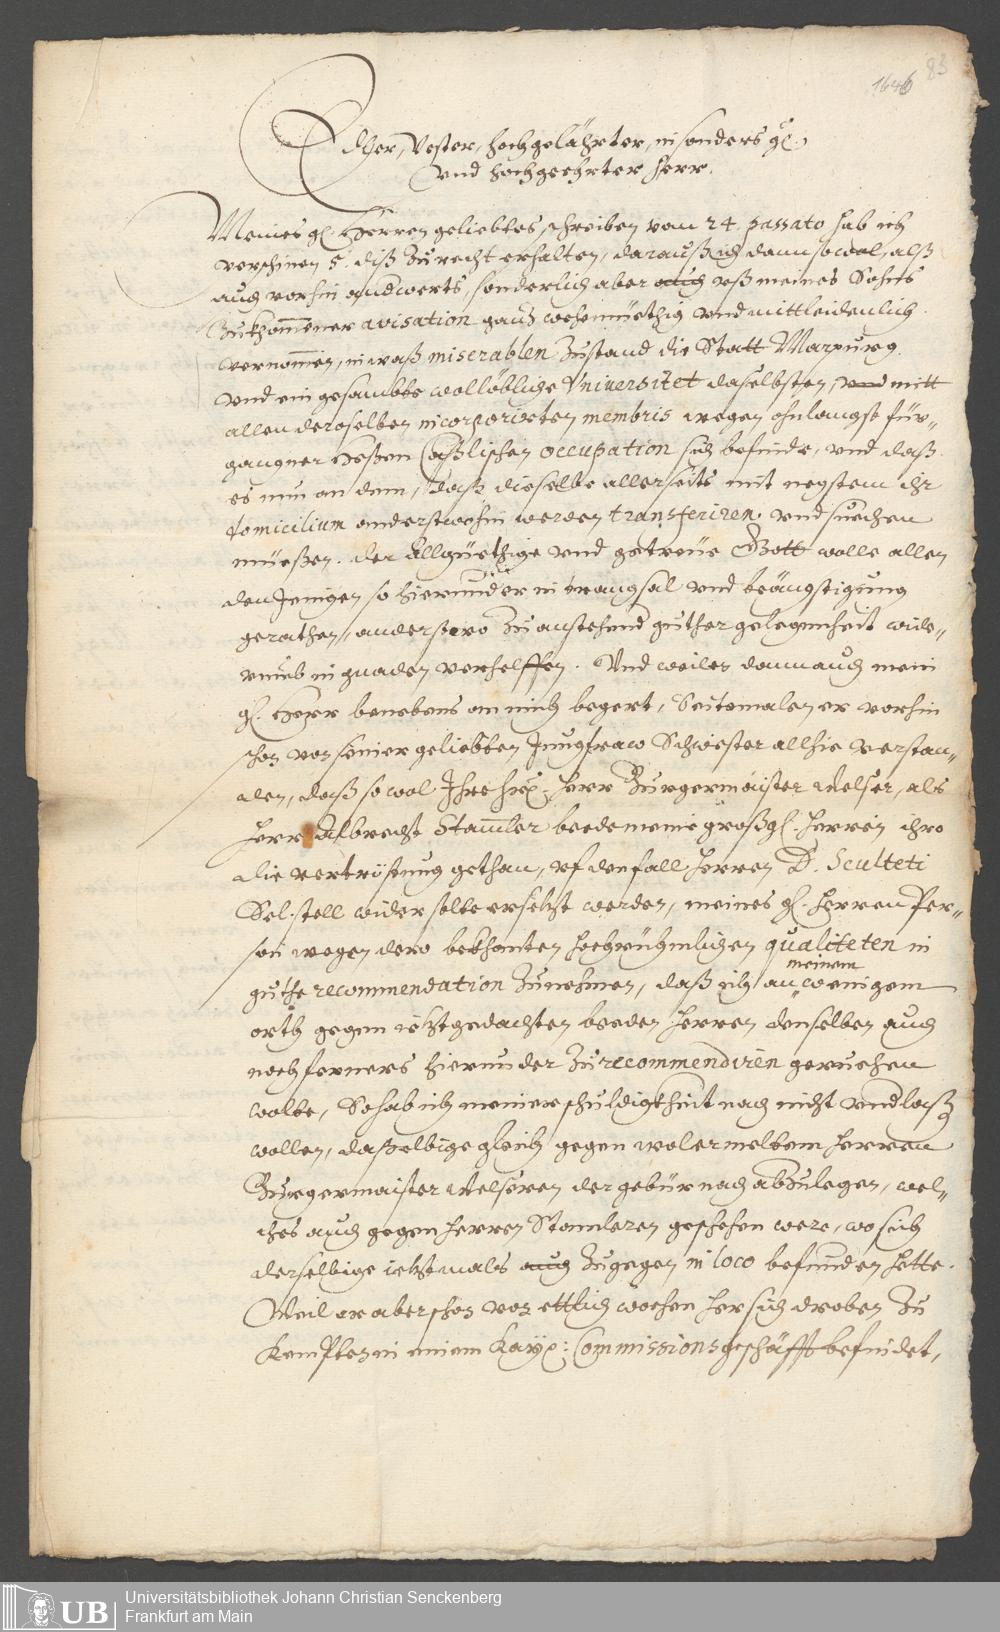 83
1646
Edler, Vester, hochgelährter, insonders gl.
vnd hochgeehrter Herr.
Meines gl. Herren geliebtes schreiben vom 24. passato hab ich
verschinen 5. diß zu recht erhalten, darauß ich dann sowol, alß
auch vorhin andwerts, sonderlich aber auch auß meines Sohns
zukhommener avisation gantz wehemüethig vnd mittleidenlich
vernommen, in waß miserablen zustand die Statt Marpurg
vnd ein gesambte wollöbliche Vniversitet daselbsten, vnd mitt
allen deroselben incorporirten membris wegen ohnlangst für„
gangner Heßen Caßlischen occupation sich befinde, vnd daß
es nun an dem, daß dieselbe allerseits mit negstem ihr
domicilium anderstwohin werden transferiren, vnd suechen
müeßen. der Allgüethige vnd getreüe Gott wolle allen
den Jenigen so hierunder in trangsal vnd beängstigung
gerathen, anderstwo zu anstehend guther gelegenheit wide„
rumb in gnaden verhelffen. Vnd weilen dann auch mein
gl. Herr benebens an mich begert, Seitemalen er vorhin
schon von seiner geliebten Jungfraw Schwester allhie verstan„
den, daß so wol Ihre Hrl. Herr Burgermaister Welser, als
Herr Albrecht Stamler beede meine großgl. Herren ihro
die vertröstung gethan, vf den fall Herren D. Sculteti
Sel. stell wider solte ersetzt werden, meines gl. Herren Per„
son wegen dero bekhanten hochrühmlichen qualiteten in
guthe recommendation zunehmen, daß ich an meinem wenigem
orth gegen ietztgedachten beeden Herren denselben auch
noch ferners hierunder zu recommendiren geruehen
wolte, So hab ich meiner schuldigkheit nach nicht vnderlaßen
wollen, daßelbige gleich gegen wolermeltem Herren
Burgermaister Welseren der gebür nach abzulegen, wel„
ches auch gegen Herren Stamleren geschehen were, wo sich
derselbige ietzmals auch zugegen in loco befunden hette.
Weil er aber schon von ettlich wochen her sich droben zu
Kempten in einem Kayß: Commissionsgeschäfft befindet,
UB
Universitätsbibliothek Johann Christian Senckenberg
Frankfurt am Main